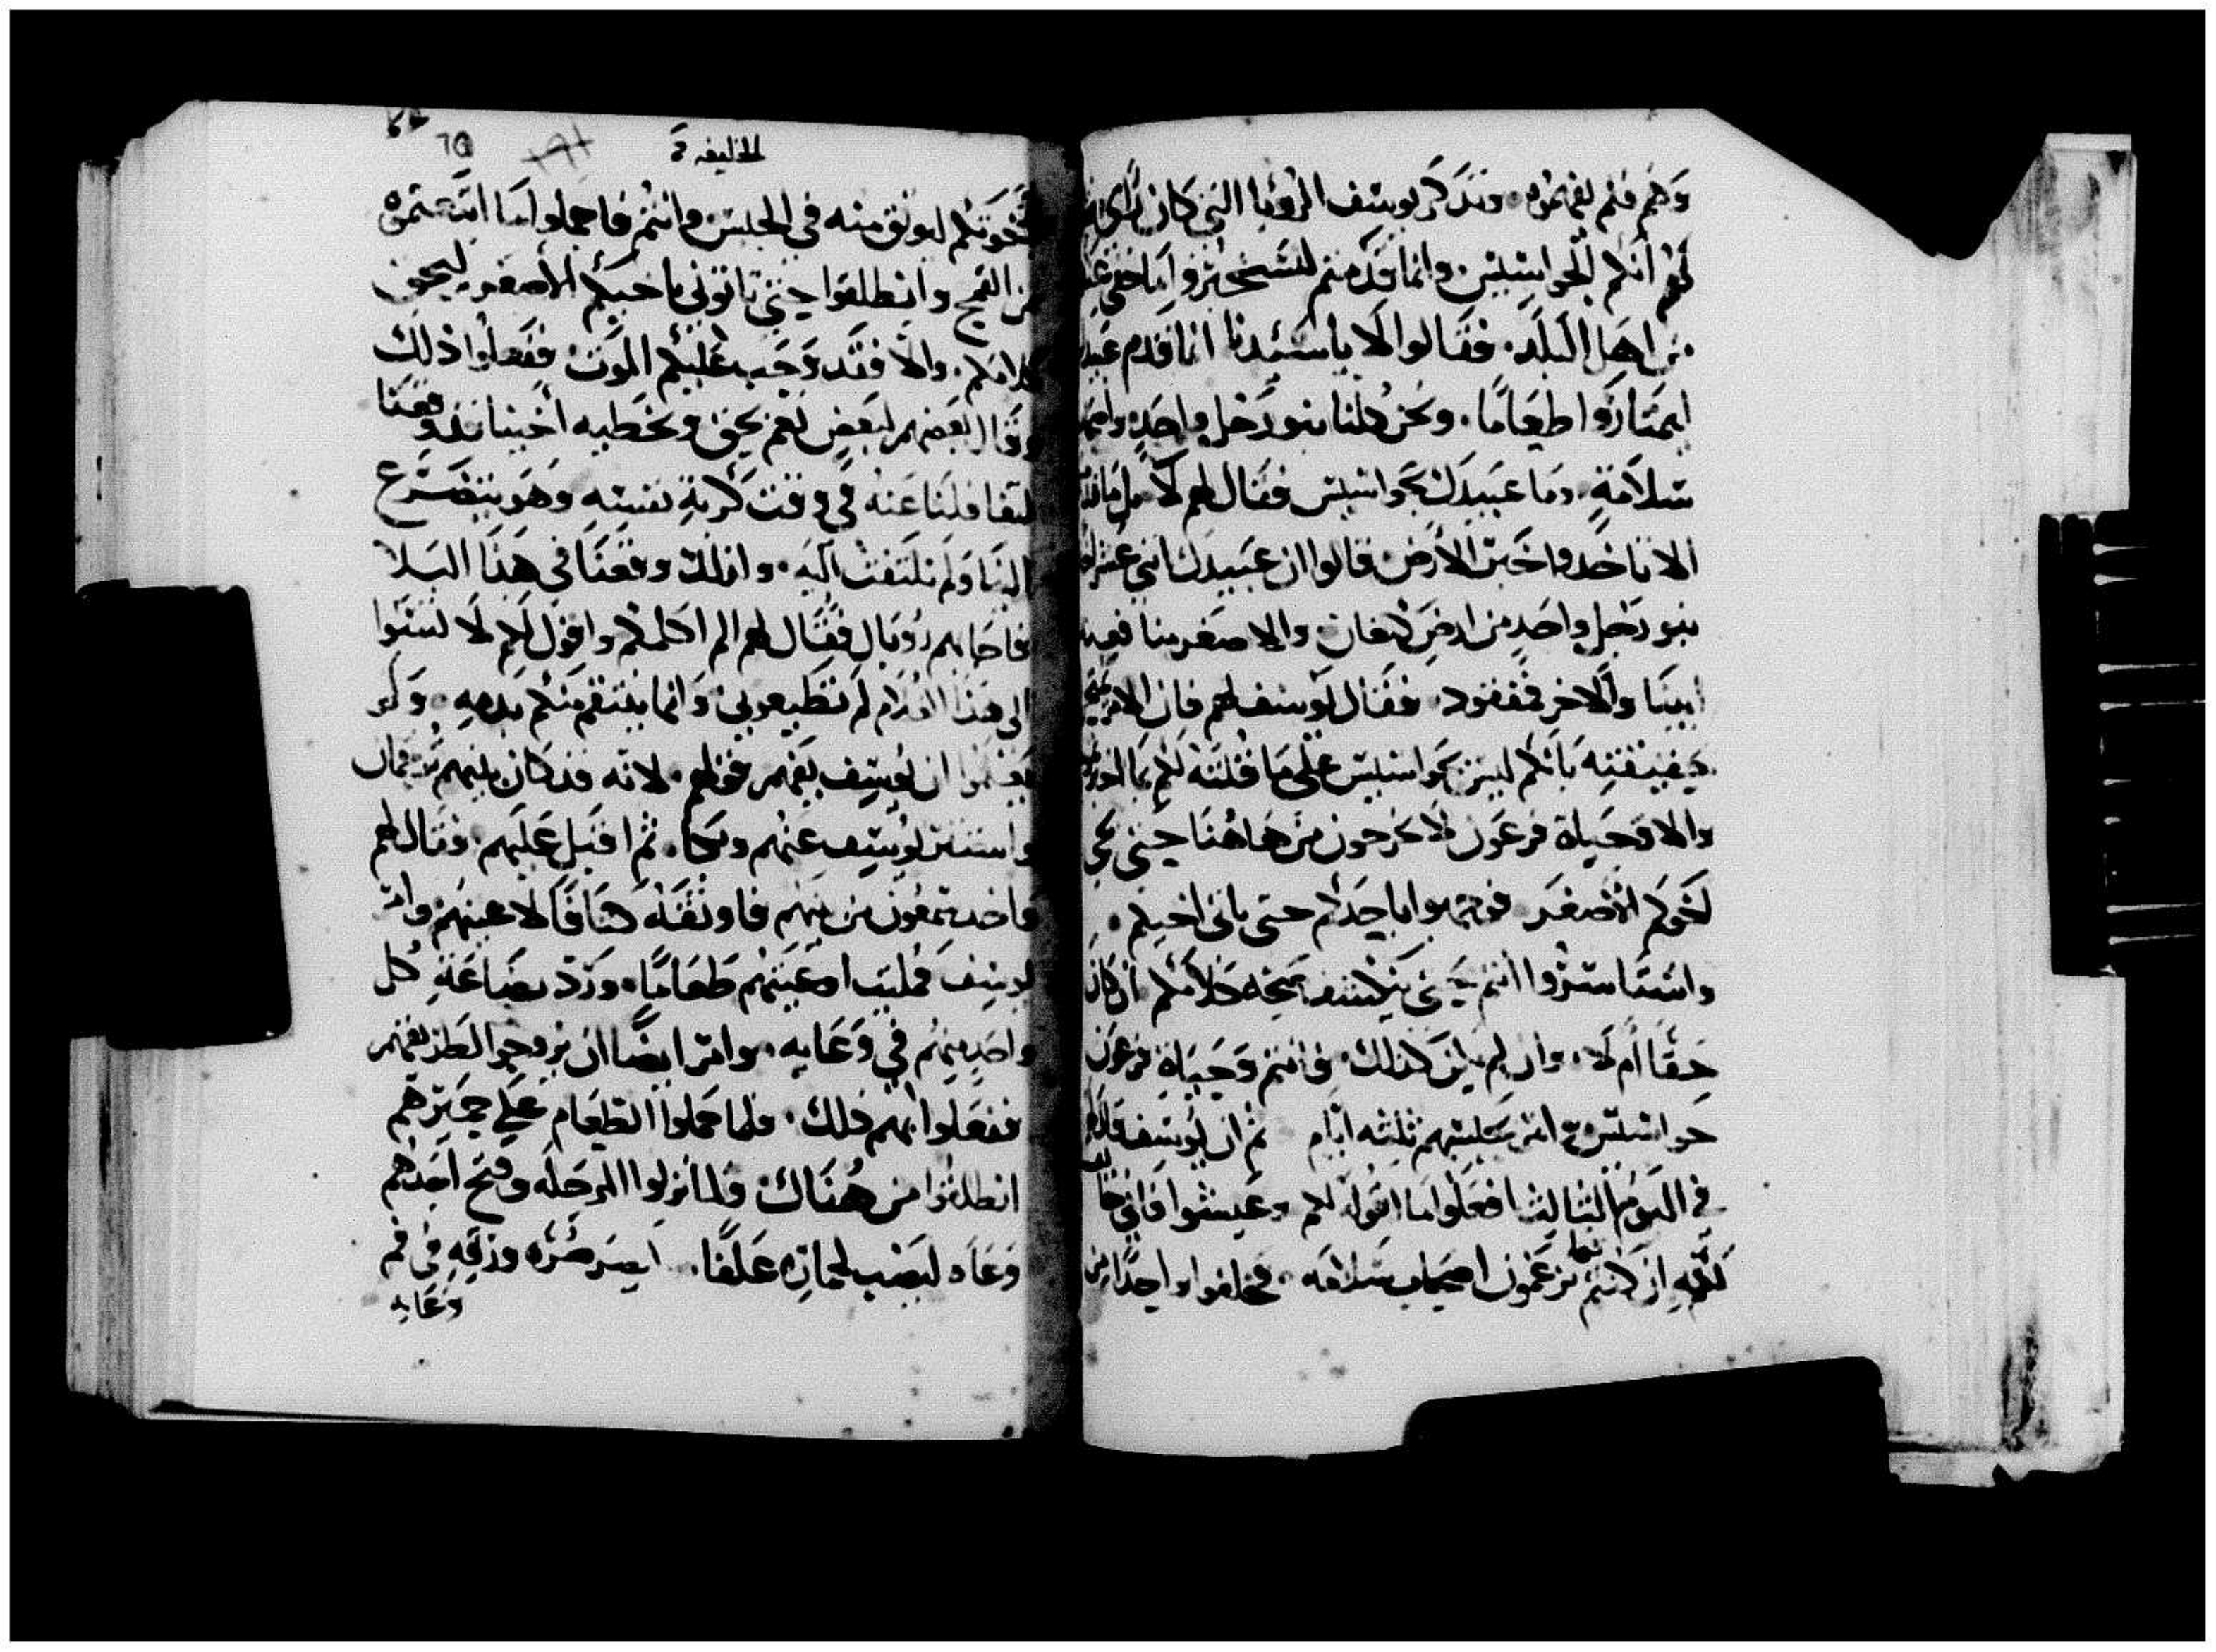 وهم فلم يعرفوه وتذكر يوسف الرؤيا التي كان رأى
لهم انكم لجواسيس وانما قدمتم لتتخبروا ما خفي
من اهل البلد فقالوا لا يا سيدنا انما قدم
ليمتاروا طعاما ونحن كلنا بنو رجل واحد
سلامة وما عبيدك بجواسيس فقال لهم لا بل
الا تأخذوا خبر الارض قالوا ان عبيدك اثني عشر
بنو رجل واحد من ارض كنعان والاصغر منا
ابينا والاخر مفقود فقال يوسف لهم فان
بانكم ليس بجواسيس على ما قلته لكم
والا وحياة فرعون لا تخرجون من هاهنا حتى
اخوكم الاصغر فوجهوا باحدكم حتى ياتي اخيكم
واستاسروا انتم حتى ينكشف كلامكم ان كان
حقا ام لا وان لم يكن كذلك فانتم وحياة فرعون
جواسيس ثلثه ايام ثم ان يوسف قال
في اليوم الثالث افعلوا ما اقوله لكم وعيشوا فاني
لله ان كنتم تزعمون اصحاب سلامه فخلفوا واحدا من
الخليقه
اخوتكم ليوثق منه في الحبس وانتم فاحملوا ما
من القمح وانطلقوا حتى تاتوني باخيكم الاصغر ليحق
كلامكم والا فقد وجب عليكم الموت ففعلوا ذلك
وقال بعضهم لبعض نعم بحق وبخطيه اخينا
لتغافلنا عنه في وقت كربة نفسه وهو يتضرع
الينا ولم نلتفت اليه ولذلك وقعنا في هذا البلا
فاجابهم روبال فقال لهم الم اكلمكم واقول لكم لا تسيوا
الى هذا الغلام لم تطيعوني وانما ينتقم منكم بدمه ولم
يعلموا ان يوسف يفهم قولهم لانه قد كان بينهم ترجمان
واستتر يوسف عنهم وبكا ثم اقبل عليهم وقال لهم
واخد شمعون من بينهم فاوثقه كتافا لاعينهم وامر
يوسف فمليت اوعيتهم طعاما ورد بضاعة كل
واحد منهم في وعايه وامر ايضا ان يزودوا لطريقهم
ففعلوا بهم ذلك فلما حملوا الطعام على حميرهم
انطلقوا من هناك فلما نزلوا المرحله وفتح احدهم
وعاه ليصب لحماره علفا ابصر صره ورقه في فم
وعايه